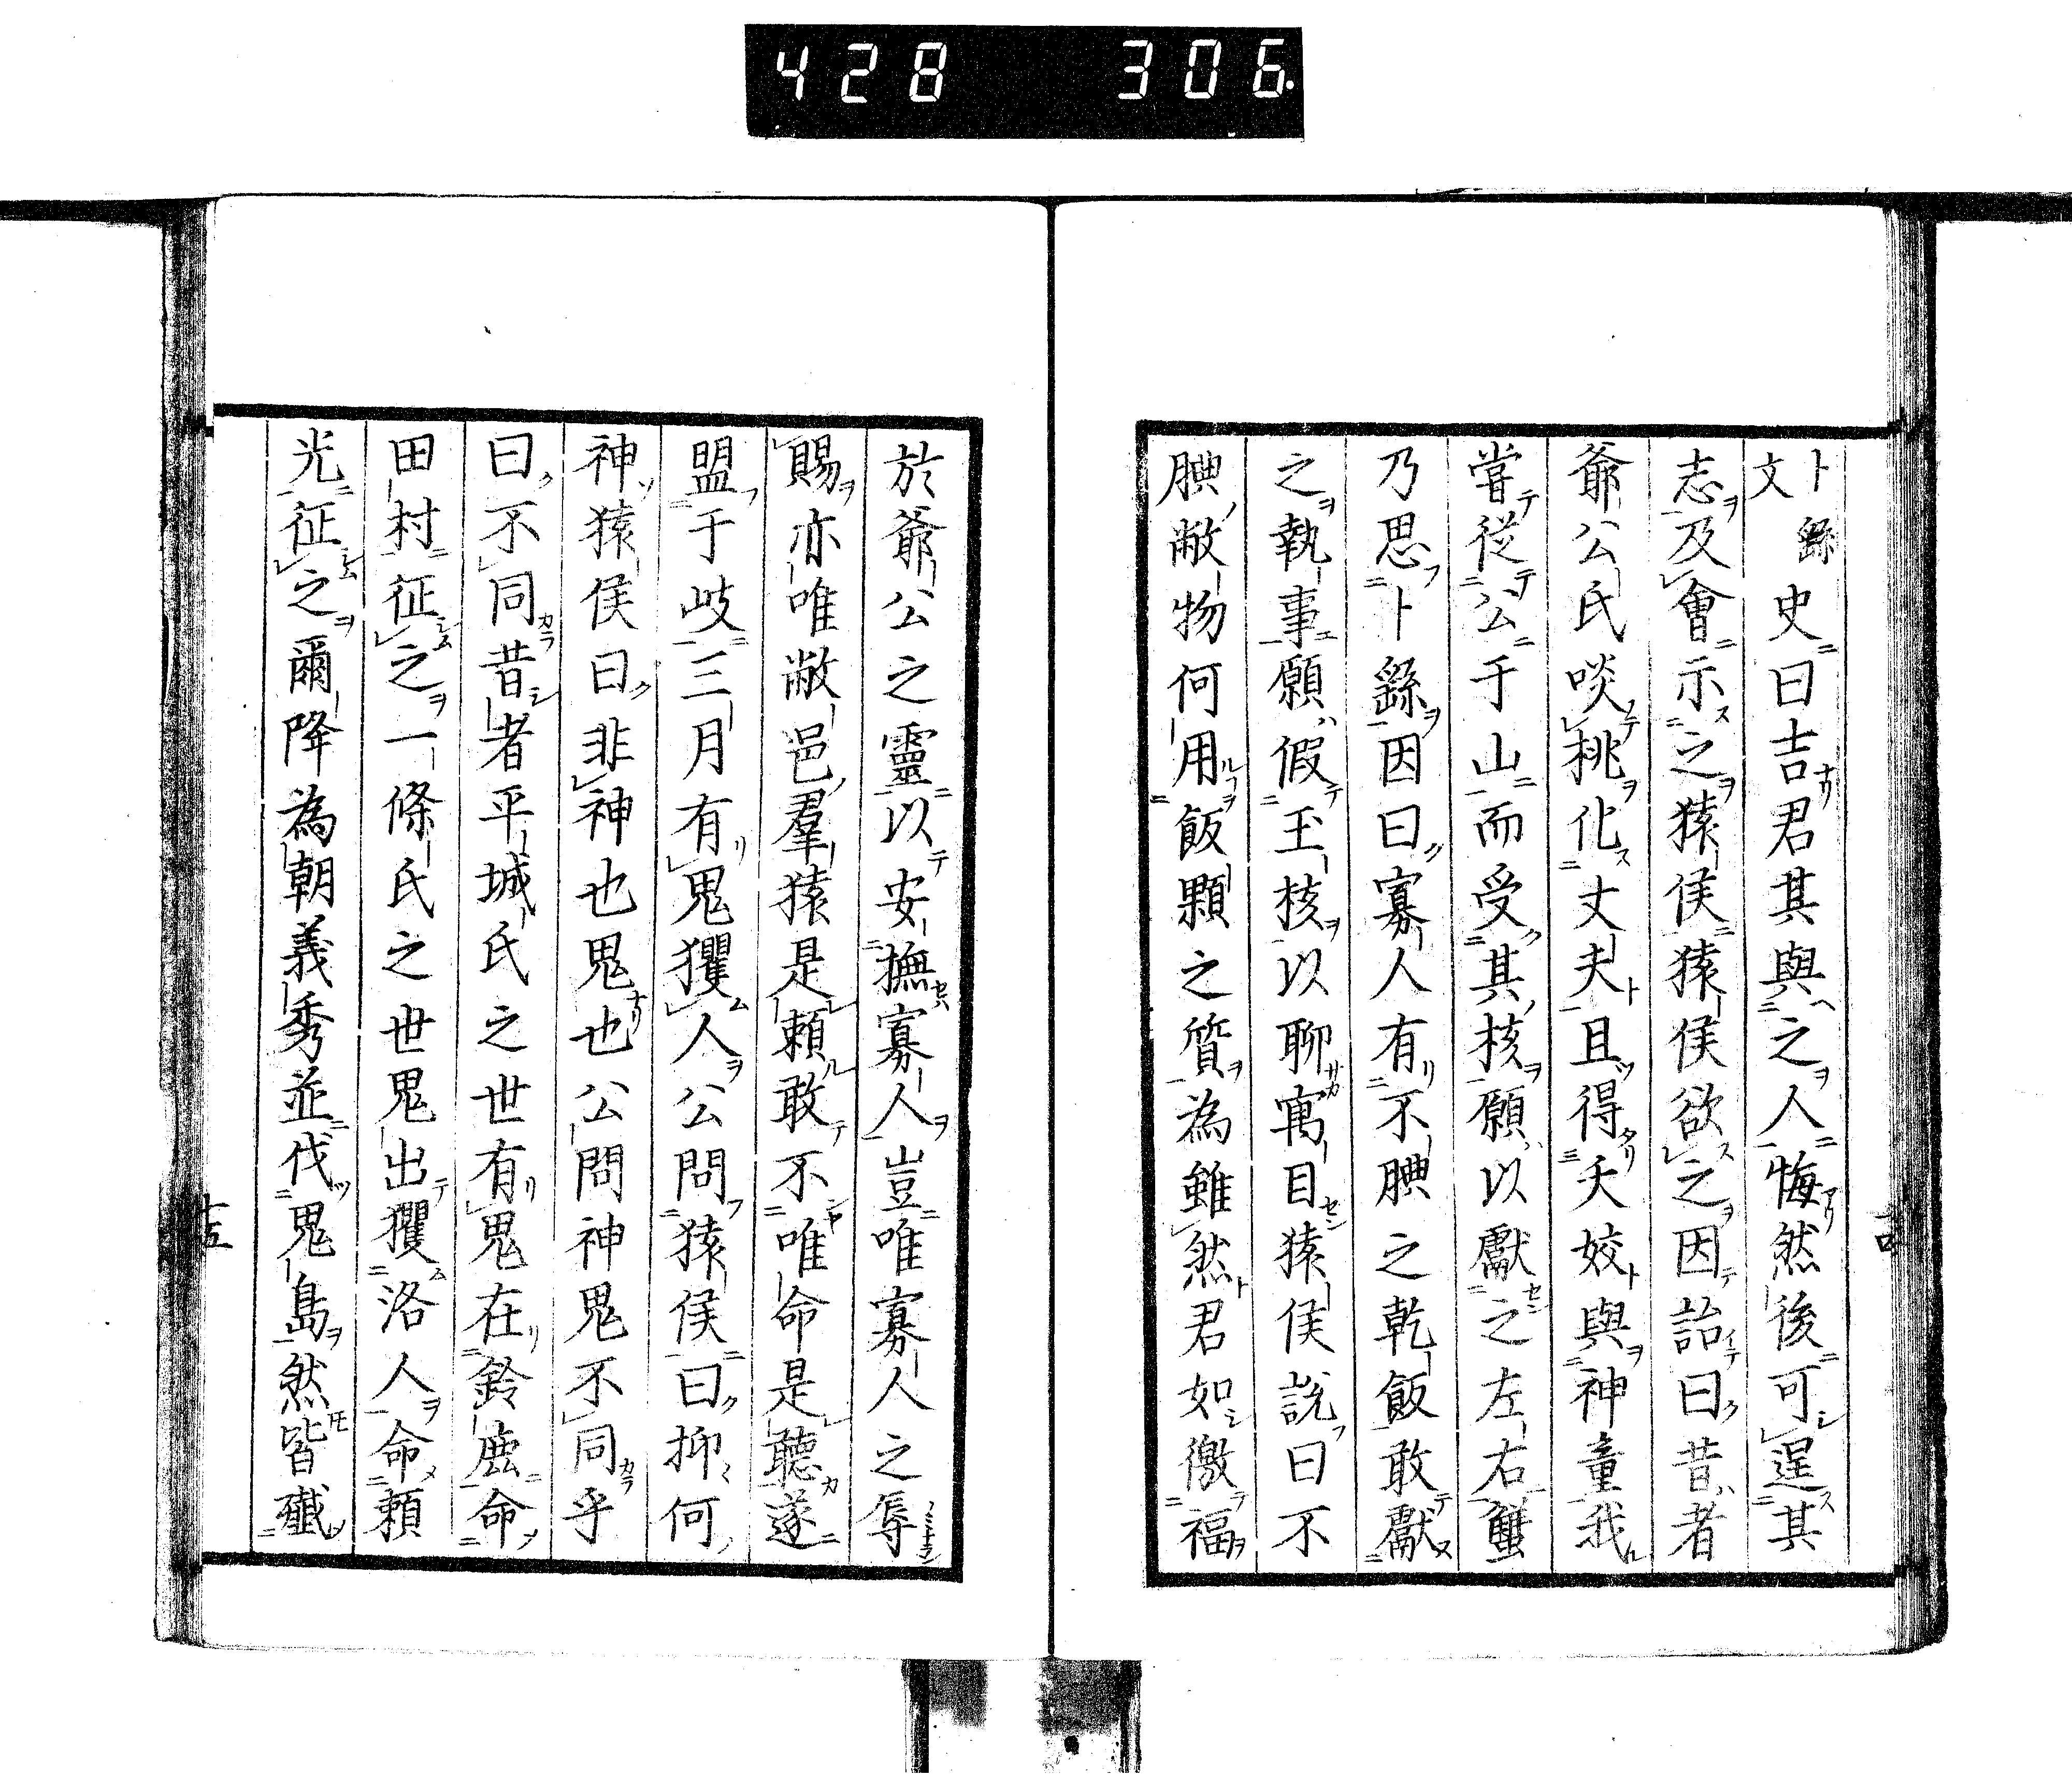 428 306.
卜繇文史曰吉君其與之人悔然後可逞其
志及會示之猿侯猿侯欲之因詒曰昔者
爺公氏啖桃化丈夫且得夭姣與神童我
嘗從公于山而受其核願以獻之左右蟹
乃思卜繇因曰寡人有不腆之乾飯敢獻
之執事願假玉核以聊寓目猿侯說曰不
腆敝物何用飯顆之質為雖然君如徼福
於爺公之靈以安撫寡人豈唯寡人之辱
賜亦唯敝邑羣猿是賴敢不唯命是聽遂
盟于岐三月有鬼玃人公問猿侯曰抑何
神猿侯曰非神也鬼也公問神鬼不同乎
曰不同昔者平城氏之世有鬼在鈴鹿命
田村征之一條氏之世鬼出玃洛人命賴
光征之爾降為朝義秀並伐鬼島然皆殲
十五